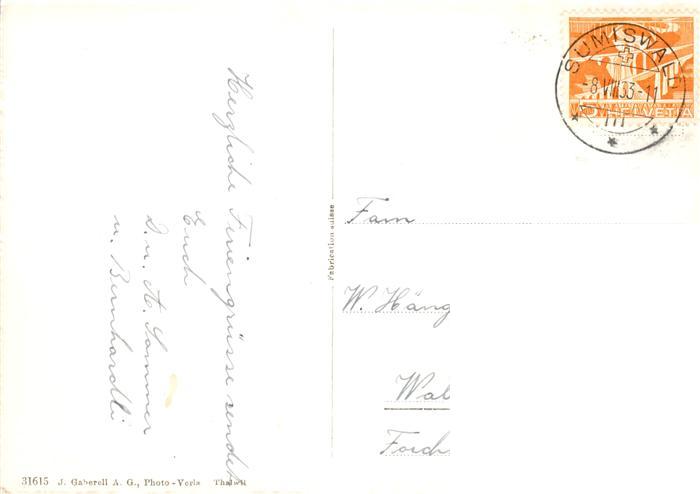 Herzliche Feriengrüsse sendet
Euch
u. A. Sommer
u. Bernhardli
Fabrication suisse
SUMISWALD
-8.VIII.53-11
HELVETIA
Fam
W. Häng
Wal
Forch
31615 J. Gaberell A. G., Photo-Verla Thalwil